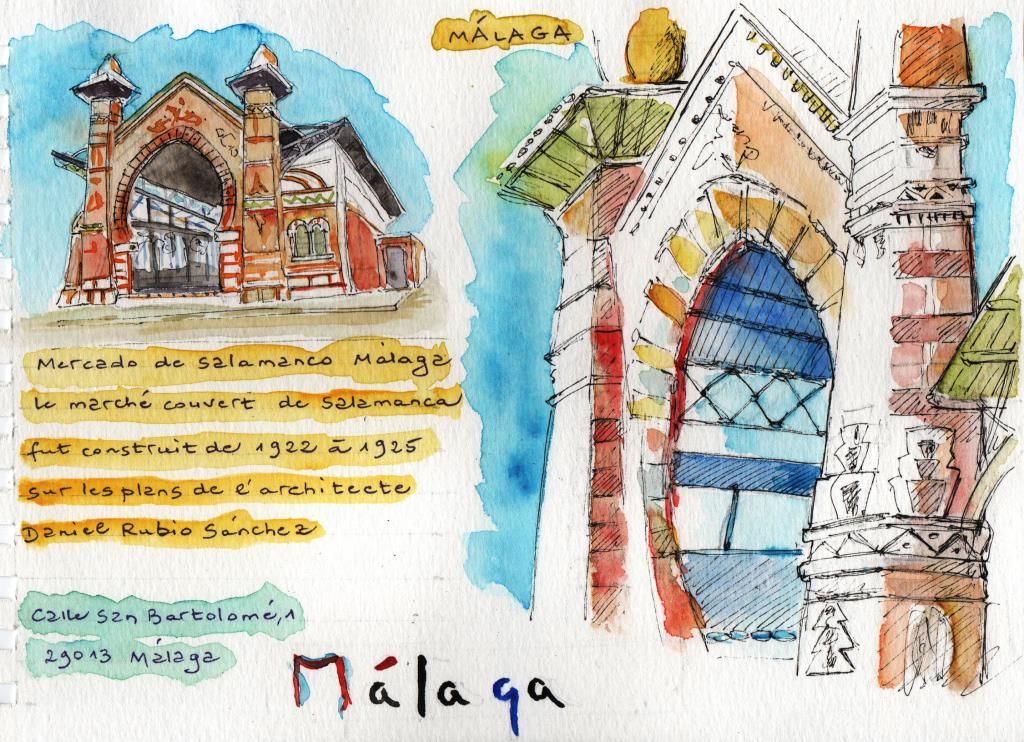 MÁLAGA
Mercado de Salamanca Málaga
le marché couvert de Salamanca
fut construit de 1922 à 1925
sur les plans de l'architecte
Daniel Rubio Sánchez
Calle San Bartolomé, 1
29013 Málaga
Málaga